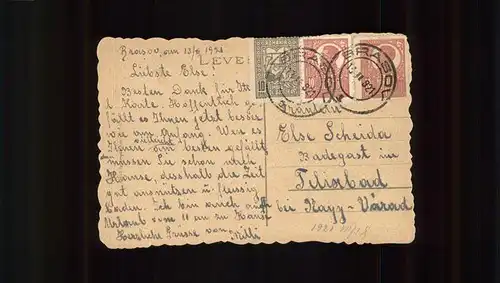 Brasov, am 13/II 1921
LEVE
Liebste Else!
Besten Dank für Ihre
l. Karte. Hoffentlich ge-
fällt es Ihnen jetzt besser
wie am Anfang. Wen es
Ihnen am besten gefällt
müssen Sie schon nach
Hause, desshalb die Zeit
gut ausnützen u fleissig
baden. Ich bin auch auf
Urlaub vom 11 an zu Hause
Herzliche Grüsse von Willi
10
BRASOV
921
BRASOV
921
Fräulein
Else Scheida
Badegast in
Felixbad
bei Nagy-Várad
1921